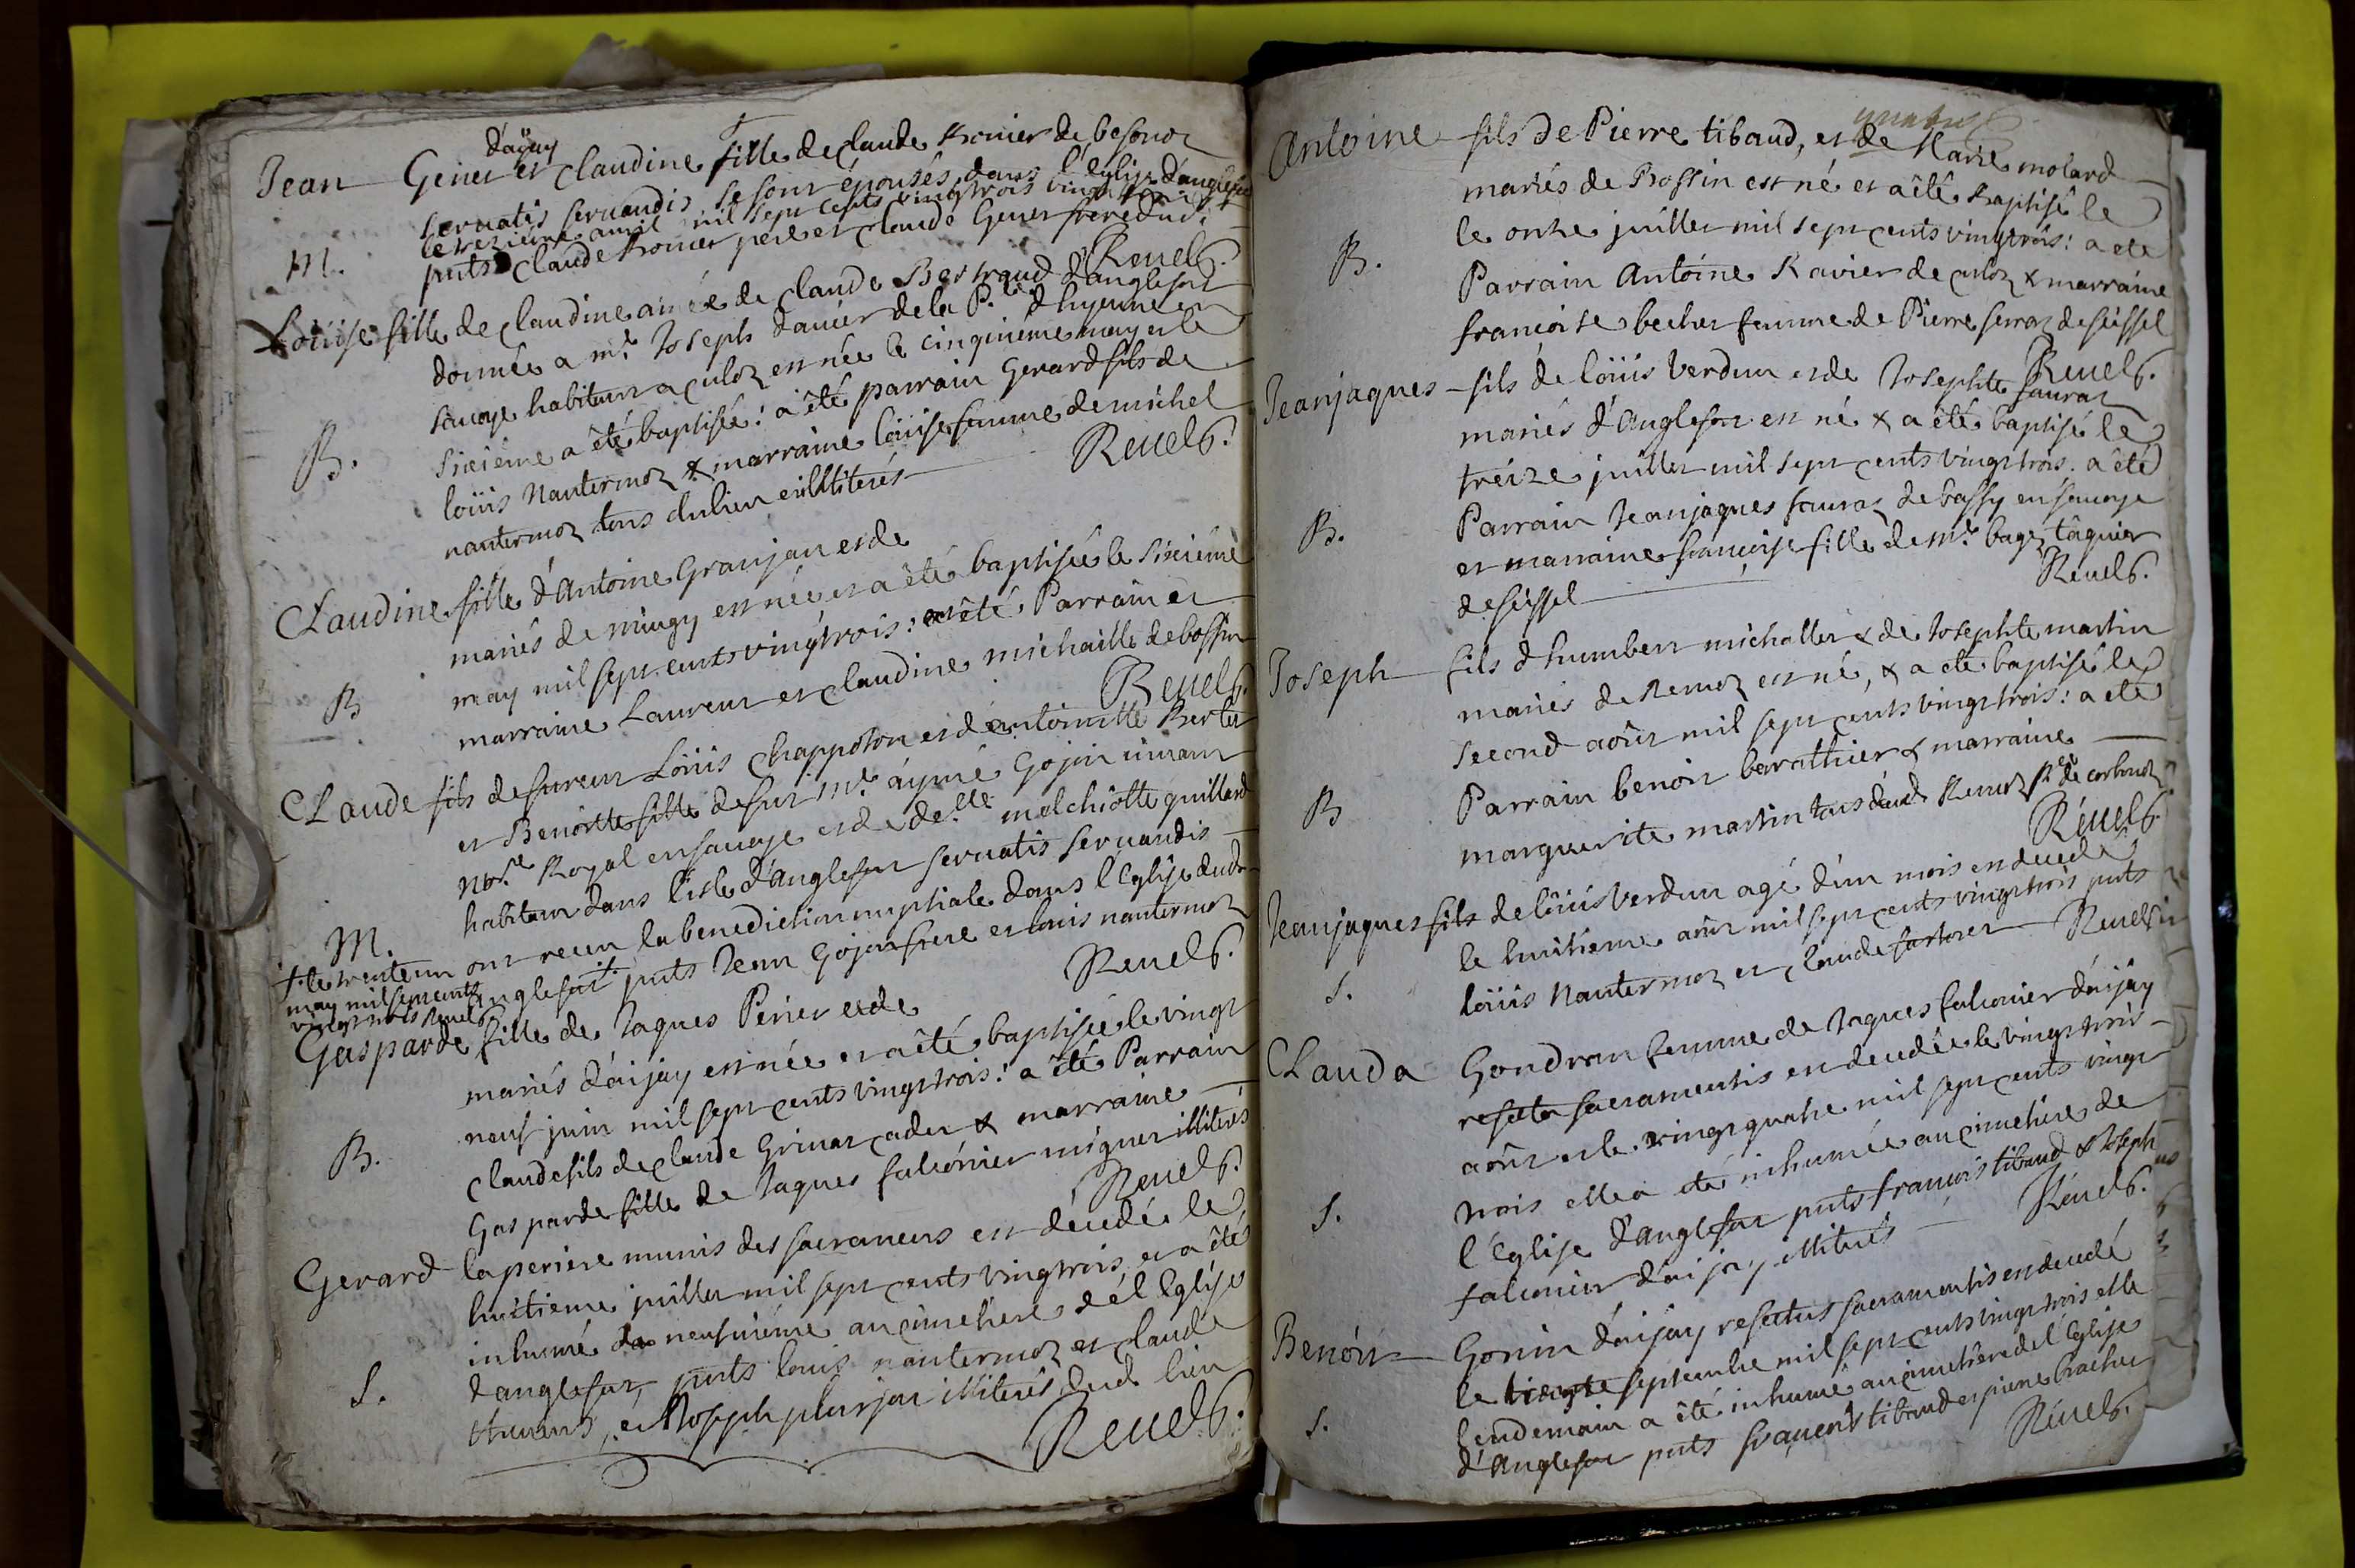 d'aijay
Jean Genet et Claudine fille de Claude
servatis servandis se sont épousés dans l'église d'anglefort
le trezieme avril mil sept cents vingtrois
M.
pnts Claude pere et Claude Genet frere dud.
Revel C.
Loüise fille de Claudine aimée de Claude Bertrand d'anglefort
donnée a mr. Joseph davier de la P.lle d'hyenne en
savoye habitant a culoz est née le cinqieme may et le
B.
sixième a êté baptisée: a êté parrain Gerard fils de
loüis Nantermoz & marraine loüise femme de michel
nantermoz tous dulieu enillitérés
Revel C.
Claudine fille d'Antoine Granjan et de
mariés de mingy est née et a êté baptisée le sixiéme
B
may mil sept cents vingtrois: ont êté Parrain et
marraine Laurent et Claudine michaille de bossin
Revel C.
Claude fils de furent Loüis Chappoton et d'antoinette
et Benoitte fille de fut mr. aymé Gojon vivant
no.re Royal en savoye et de de.lle melchiotte quilland
habitant dans l'isle d'Anglefort servatis servandis
M.
+ ont receu la benediction nuptiale dans l'Eglise dud.
+ le trente un
may mil sept cents
vingt trois Revel C.
anglefort pnts Jean Gojon frere et loüis nantermoz
Revel C.
Gasparde fille de Jaques Périer et de
mariés d'aijay est née et a êté baptisée le vingt
neuf juin mil sept cents vingtrois: a êté Parrain
B.
Claude fils de Claude Grinar cadet & marraine
Gasparde fille de Jaques falconier mignet illitérés
Revel C.
Gerard laperiere munis des sacramens est décedé le
huitieme juillet mil sept cents vingtrois, et a êté
inhumé le neufvième au cimetiere de l'Eglise
S.
d'anglefort, pnts louis nantermoz et claude
et Joseph plurjon illiterés dud. lieu
Revel C.
Antoine fils de Pierre tibaud, et de Marie molard
mariés de Bossin est né et a êté baptisé le
B.
le onze juillet mil sept cents vingtrois: a eté
Parrain Antoine Ravier de culoz & marraine
françoise becher femme de Pierre serraz de seissel
Revel C.
Jeanjaques fils de loüis verdun et de Josephte fauraz
mariés d'Anglefort est né & a êté baptisé le
treize juillet mil sept cents vingtrois. a êté
B.
Parrain Jeanjaques fauraz de bassy en savoye
et marraine françoise fille de mr. bagez tâquier
de seissel
Revel C.
Joseph fils d'humbert michallet & de Josephte martin
mariés de Remoz est né, & a eté baptisé le
second aoüt mil sept cents vingtrois: a eté
B
Parrain benoit barathier & marraine
marguerite martin tous deux de Remoz
Revel C.
Jeanjaques fils de loüis verdun agé d'un mois est decedé
le huitieme aoüt mil sept cents vingtrois pnts
S.
loüis Nantermoz et Claude
Revel C.
Clauda Gondran femme de Jaques falconier d'aijay
refecta sacramentis est decedée le vingtrois
aoüt et le vingt quatre mil sept cents vingt
S.
trois elle a eté inhumée au cimetiere de
l'Eglise d'anglefort pnts françois tibaud & Joseph
falconier d'aijay illiterés
Revel C.
Benoit Gonin d'aijay refectus sacramentis est decedé
le septembre mil sept cents vingtrois et le
S.
lendemain a êté inhumé au cimetiere de l'Eglise
d'Anglefort pnts françois tibaud et pierre bracher
Revel C.